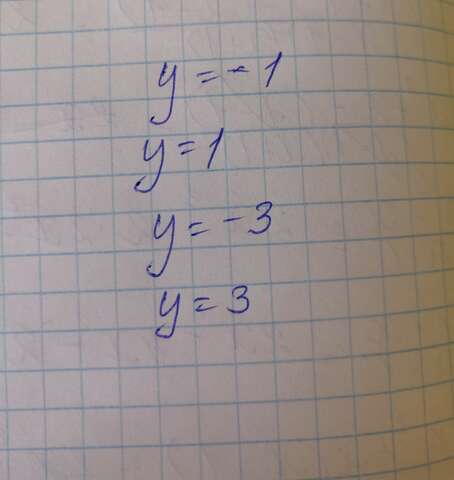 y = -1
y = 1
y = -3
y = 3